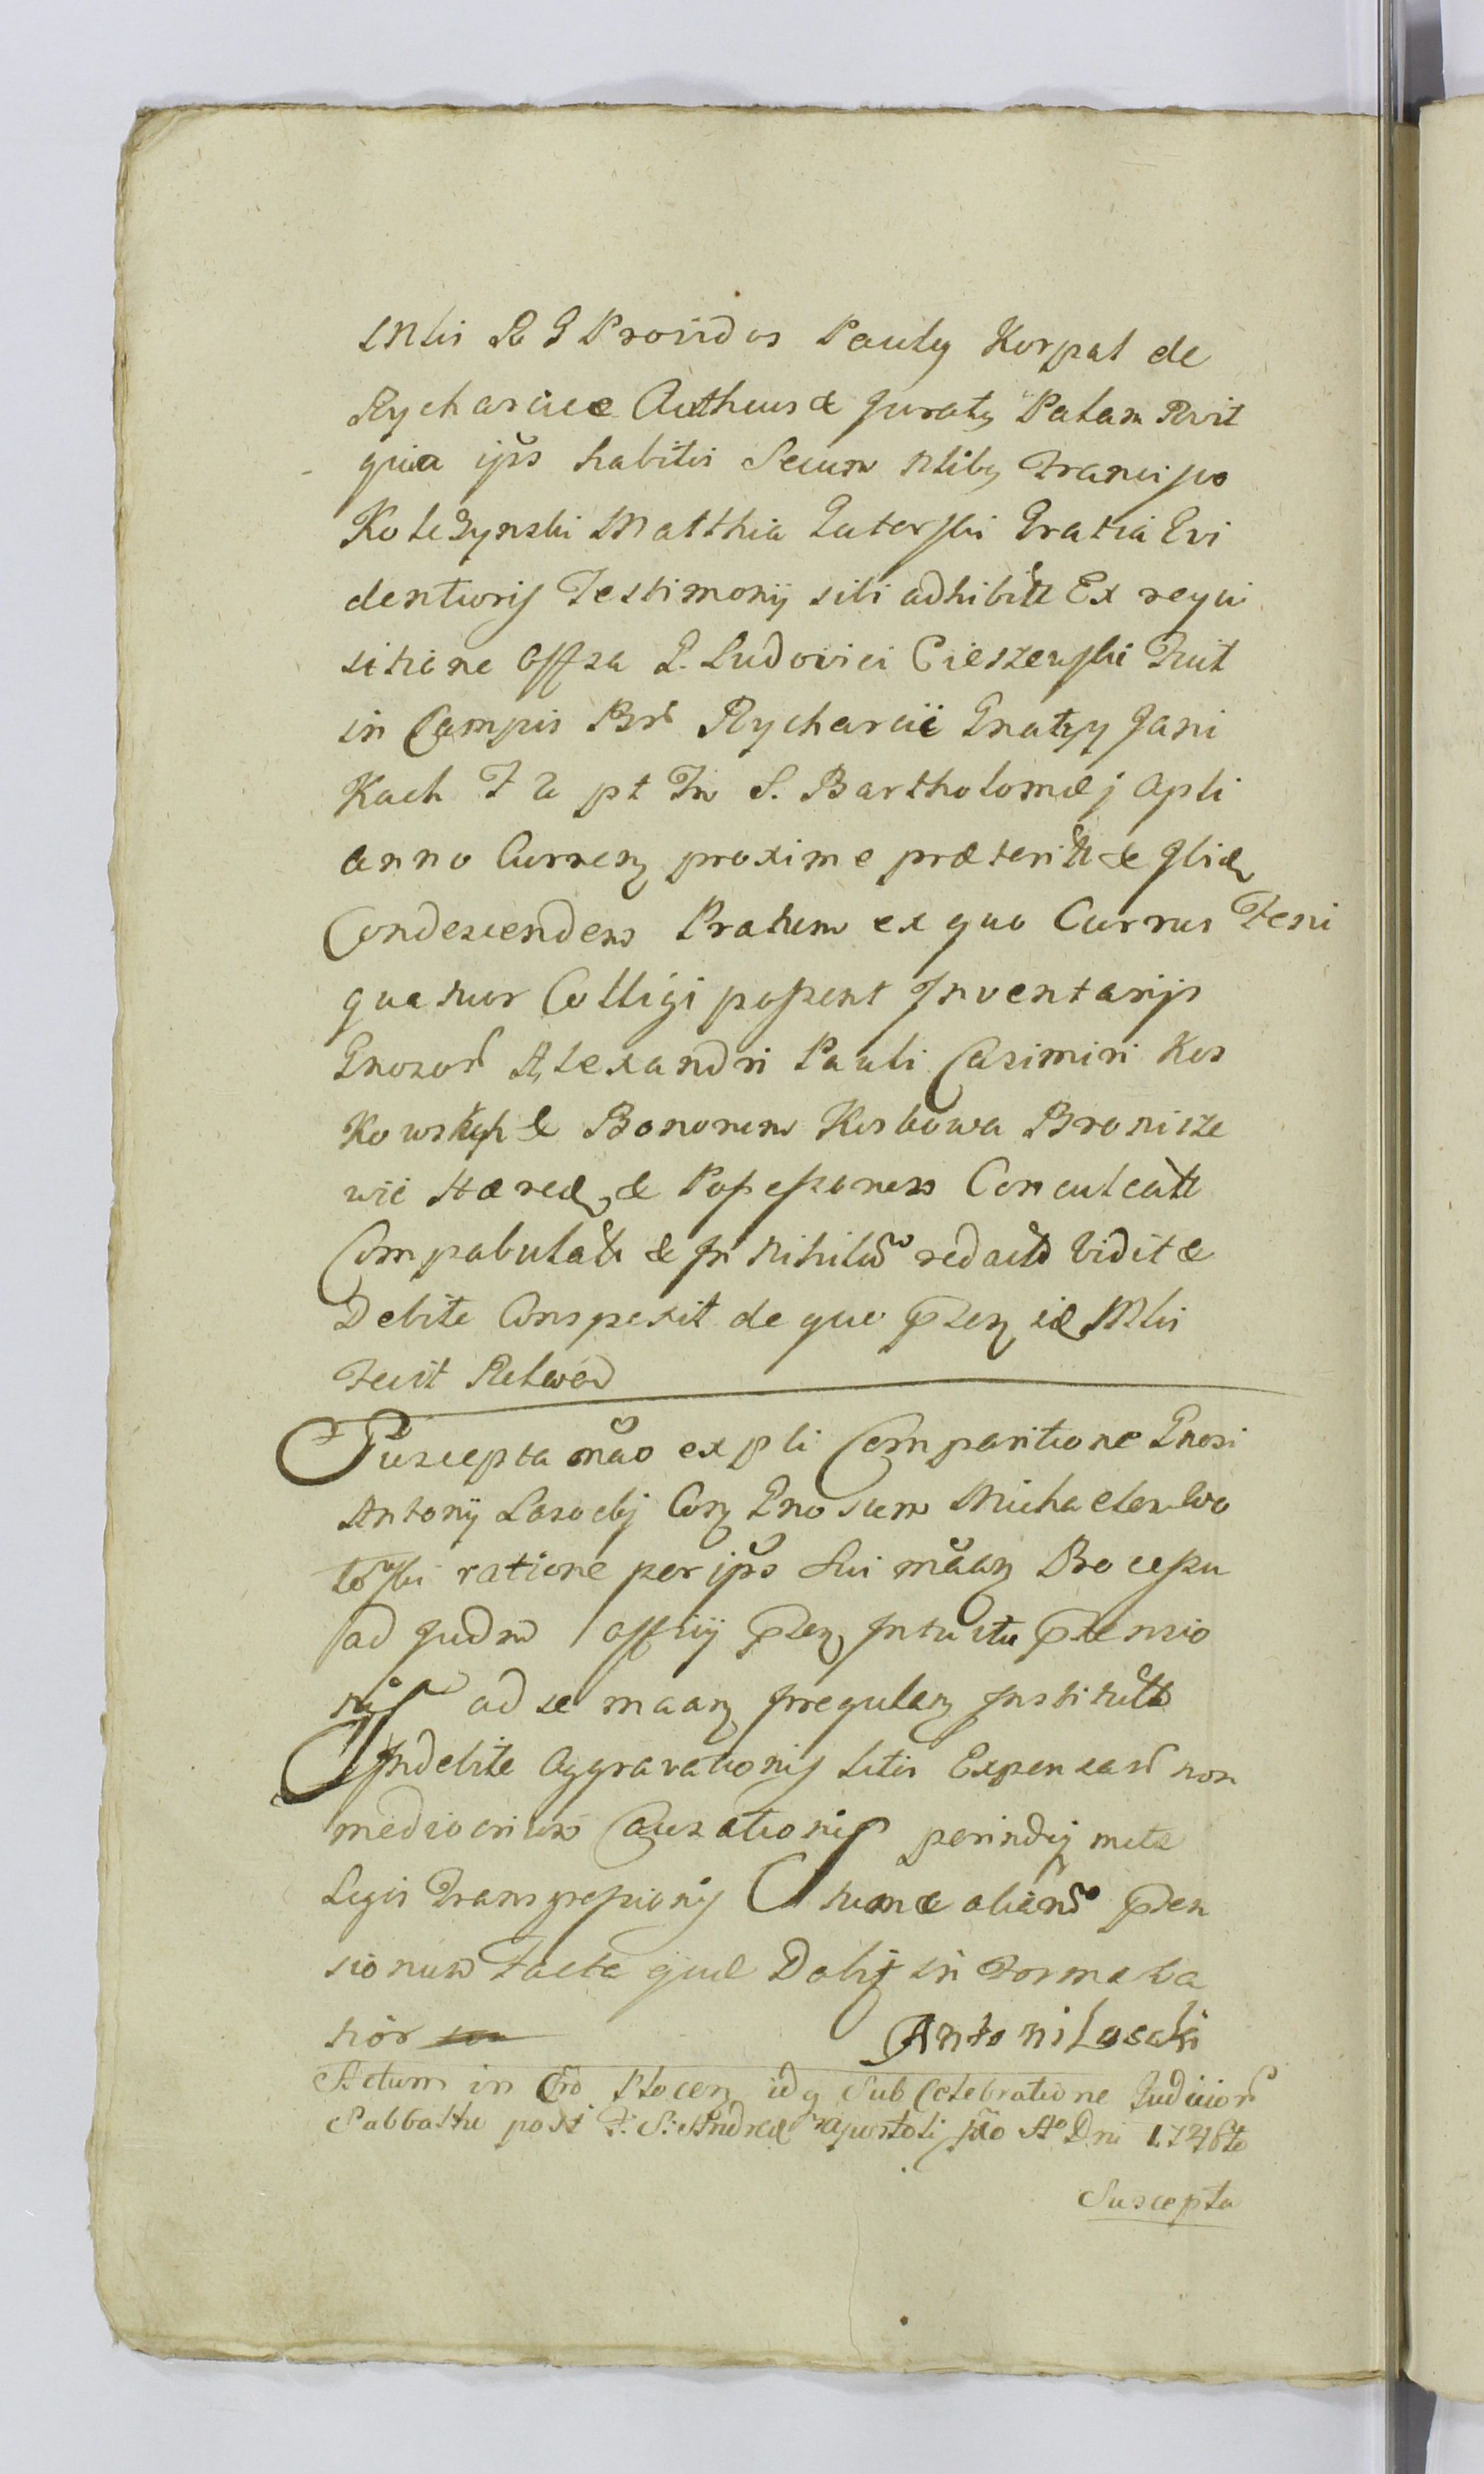 Mlis R G Providus Paulus Korpal de
Rycharcice Authens & Juratus Palam Rvit
quia ipse habitis Secum Nlibus Francisco
Koleżynski Matthia Luterski Gratia Evi
dentioris Testimonij sibi adhibitt Ex requi
sitione Offsa G. Ludovici Cieszewski Fuit
in Campis Bnr Rycharcie Gnatzy Jani
Kach F a pt Fm S. Bartholomæj Apli
anno Curren proxime præteritt & Ibidem
Condescendens Pratum ex quo Currus Feni
quatuor Colligi possent Inventarijs
Gnosor Alexandri Pauli Casimiri Kos
kowskich & Bonorum Koskowa Bronisze
wic Hæred & Possessoness Conculcatt
Compabulatt & In Nihilum redactt Vidit &
Debite Conspexit de quo psen id Mlis
Fecit Relaon
Suscepta mão expli Comparitione Gnosi
Antonij Lasocky Con Gnosum Michaelem Wo
łowski ratione per ipso Sui maan Processu
ad Judm Officij psen Intuitu ptensio
nis ad se maan Irregulan Institutt
Indebite Aggravationis Litis Expensar non
mediocrium Causationis perindeq mete
Legis Transgressionis tum & aliaru pten
sionum Facta quæ Dabit in Forma La
tior
Antoni Lasocki
Actum in Cro Plocen idq Sub Celebratione Judicior
Sabbatho post F: S: Andreæ Apostoli pxo Ao Dni 1746to
Suscepta